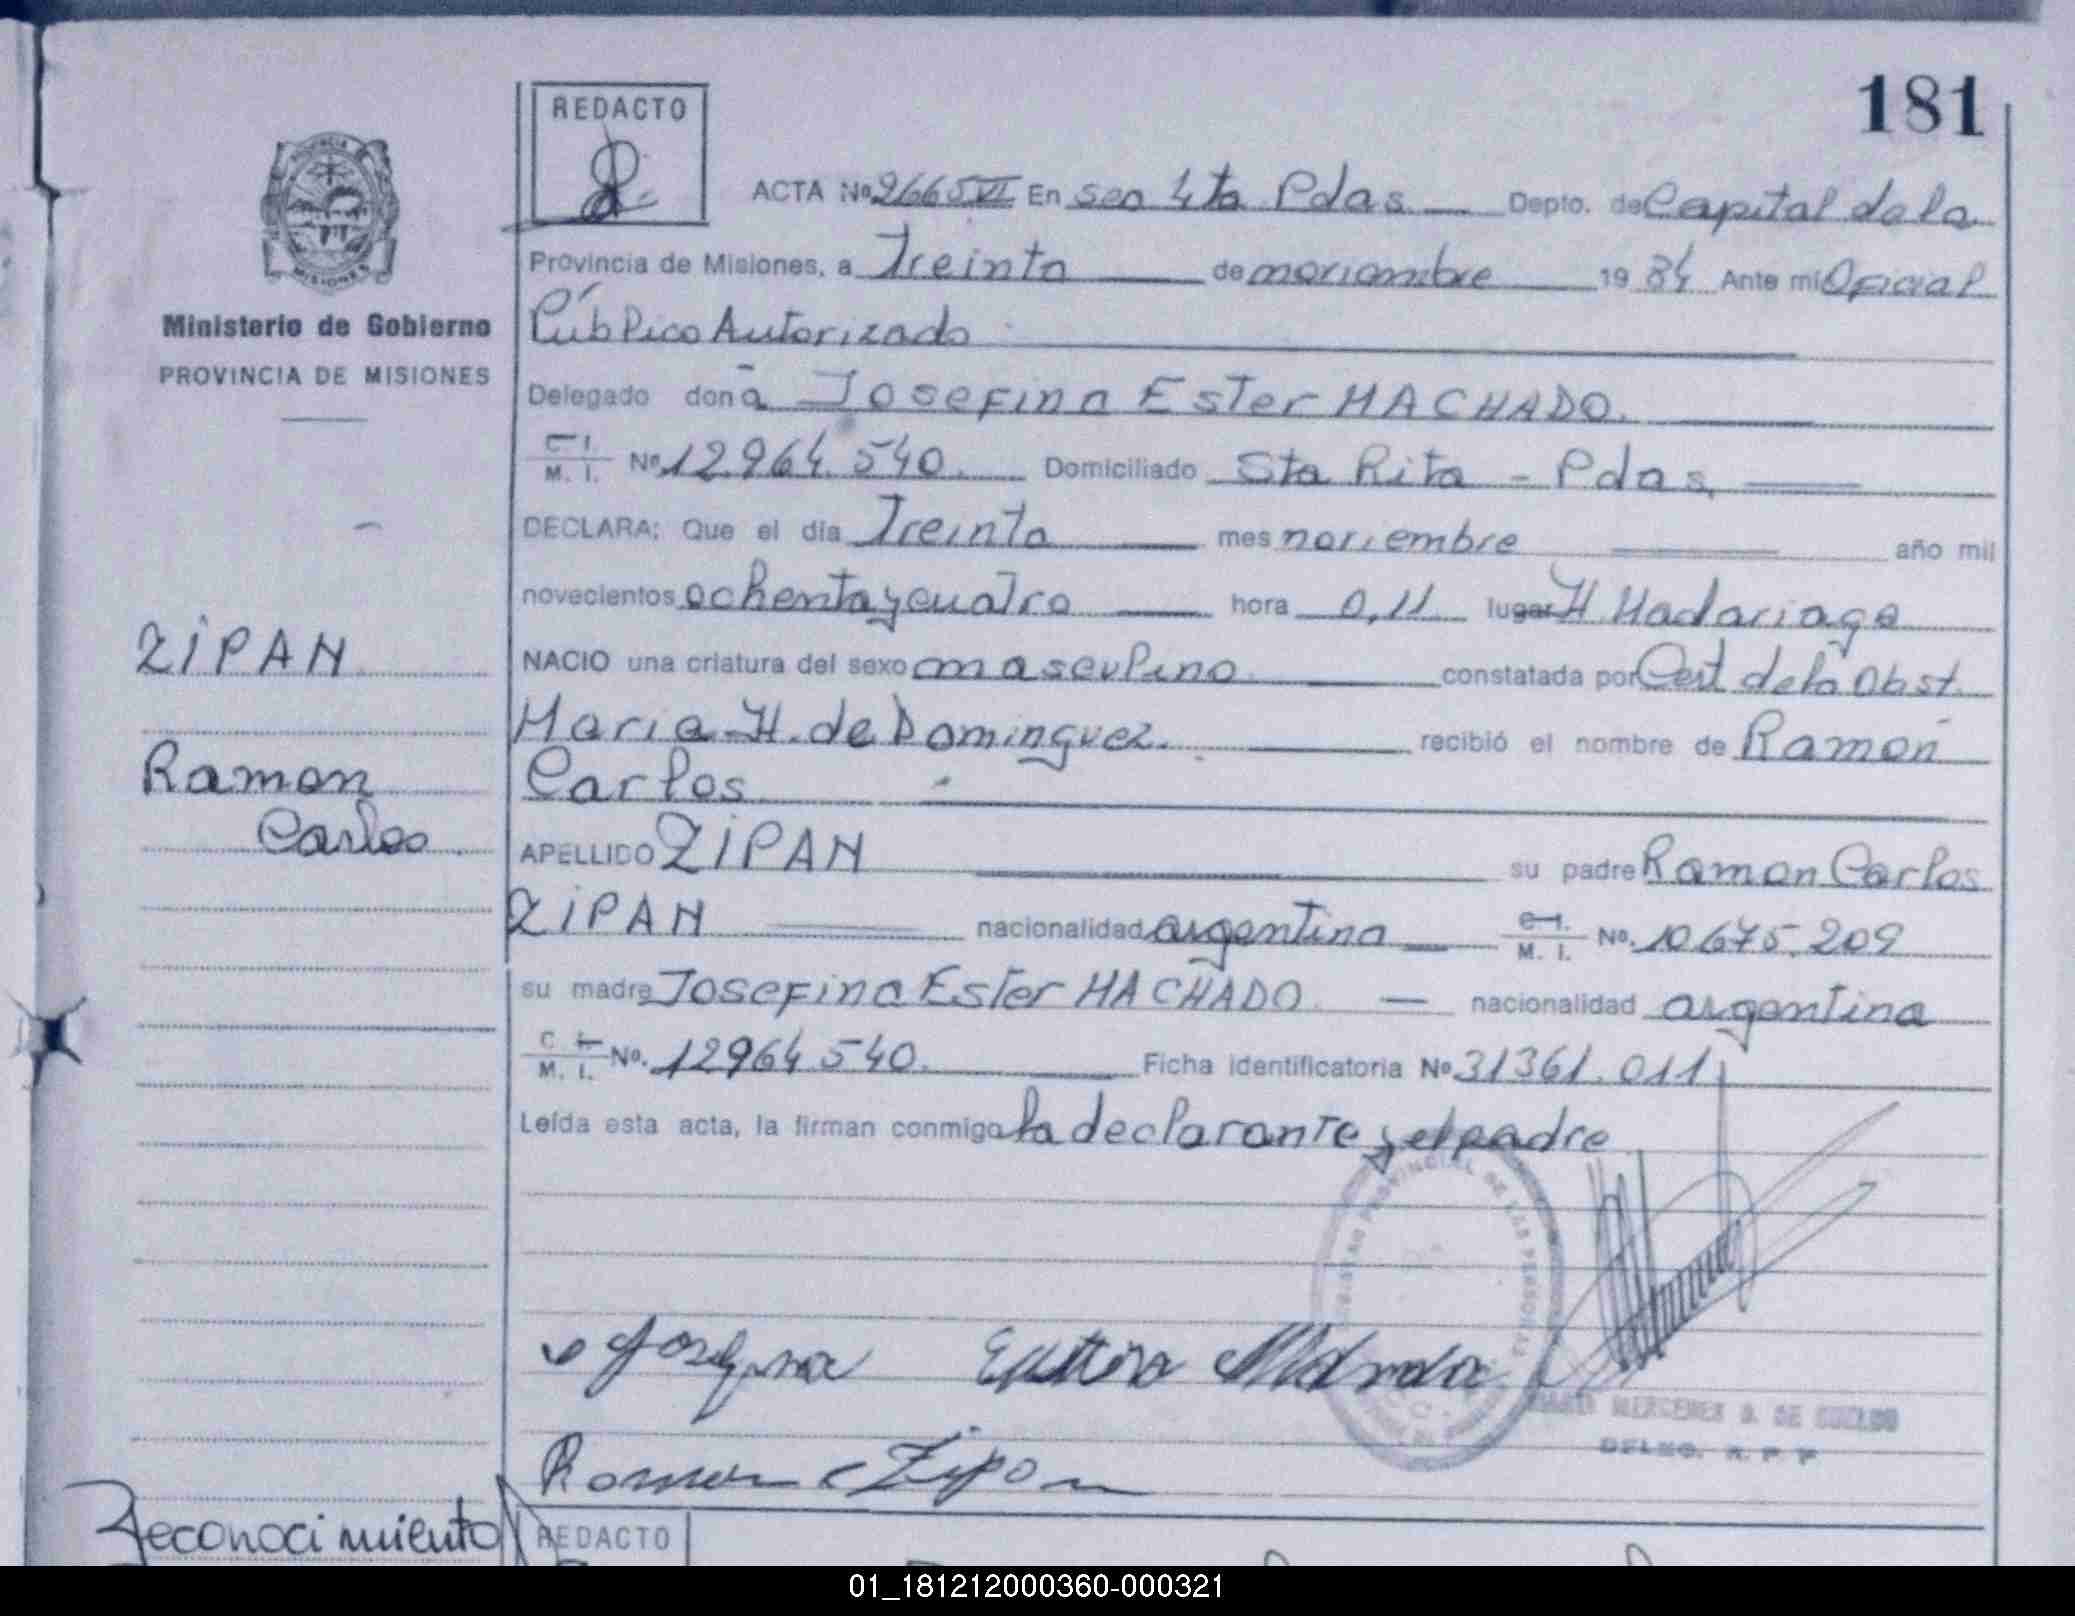 181
REDACTO
ACTA No 2665 VI En sec 4ta Pdas. Depto. de Capital de la
Provincia de Misiones, a Treinta de noviembre 1984 Ante mi Oficial
Público Autorizado
Ministerio de Gobierno
PROVINCIA DE MISIONES
Delegado doña Josefina Ester MACHADO.
C. I. M. I. No 12.964.540. Domiciliado Sta Rita - Pdas,
DECLARA: Que el día Treinta mes noviembre año mil
novecientos ochenta y cuatro hora 0,11 lugar H. Madariaga
NACIO una criatura del sexo masculino constatada por Cert de la Obst.
Maria H. de Dominguez. recibió el nombre de Ramón
Carlos
ZIPAN
Ramon
Carlos
APELLIDO ZIPAN su padre Ramon Carlos
ZIPAN nacionalidad argentina C. I. M. I. No. 10.675.209
su madre Josefina Ester MACHADO nacionalidad argentina
C. I. M. I. No. 12964.540. Ficha identificatoria No 31361.011
Leída esta acta, la firman conmigo la declarante y el padre
PROVINCIAL DE LAS PERSONAS
Josefina
Ramon C Zipan
MERCEDES DE
DELEG. R. P. P
Reconocimiento
REDACTO
01_181212000360-000321